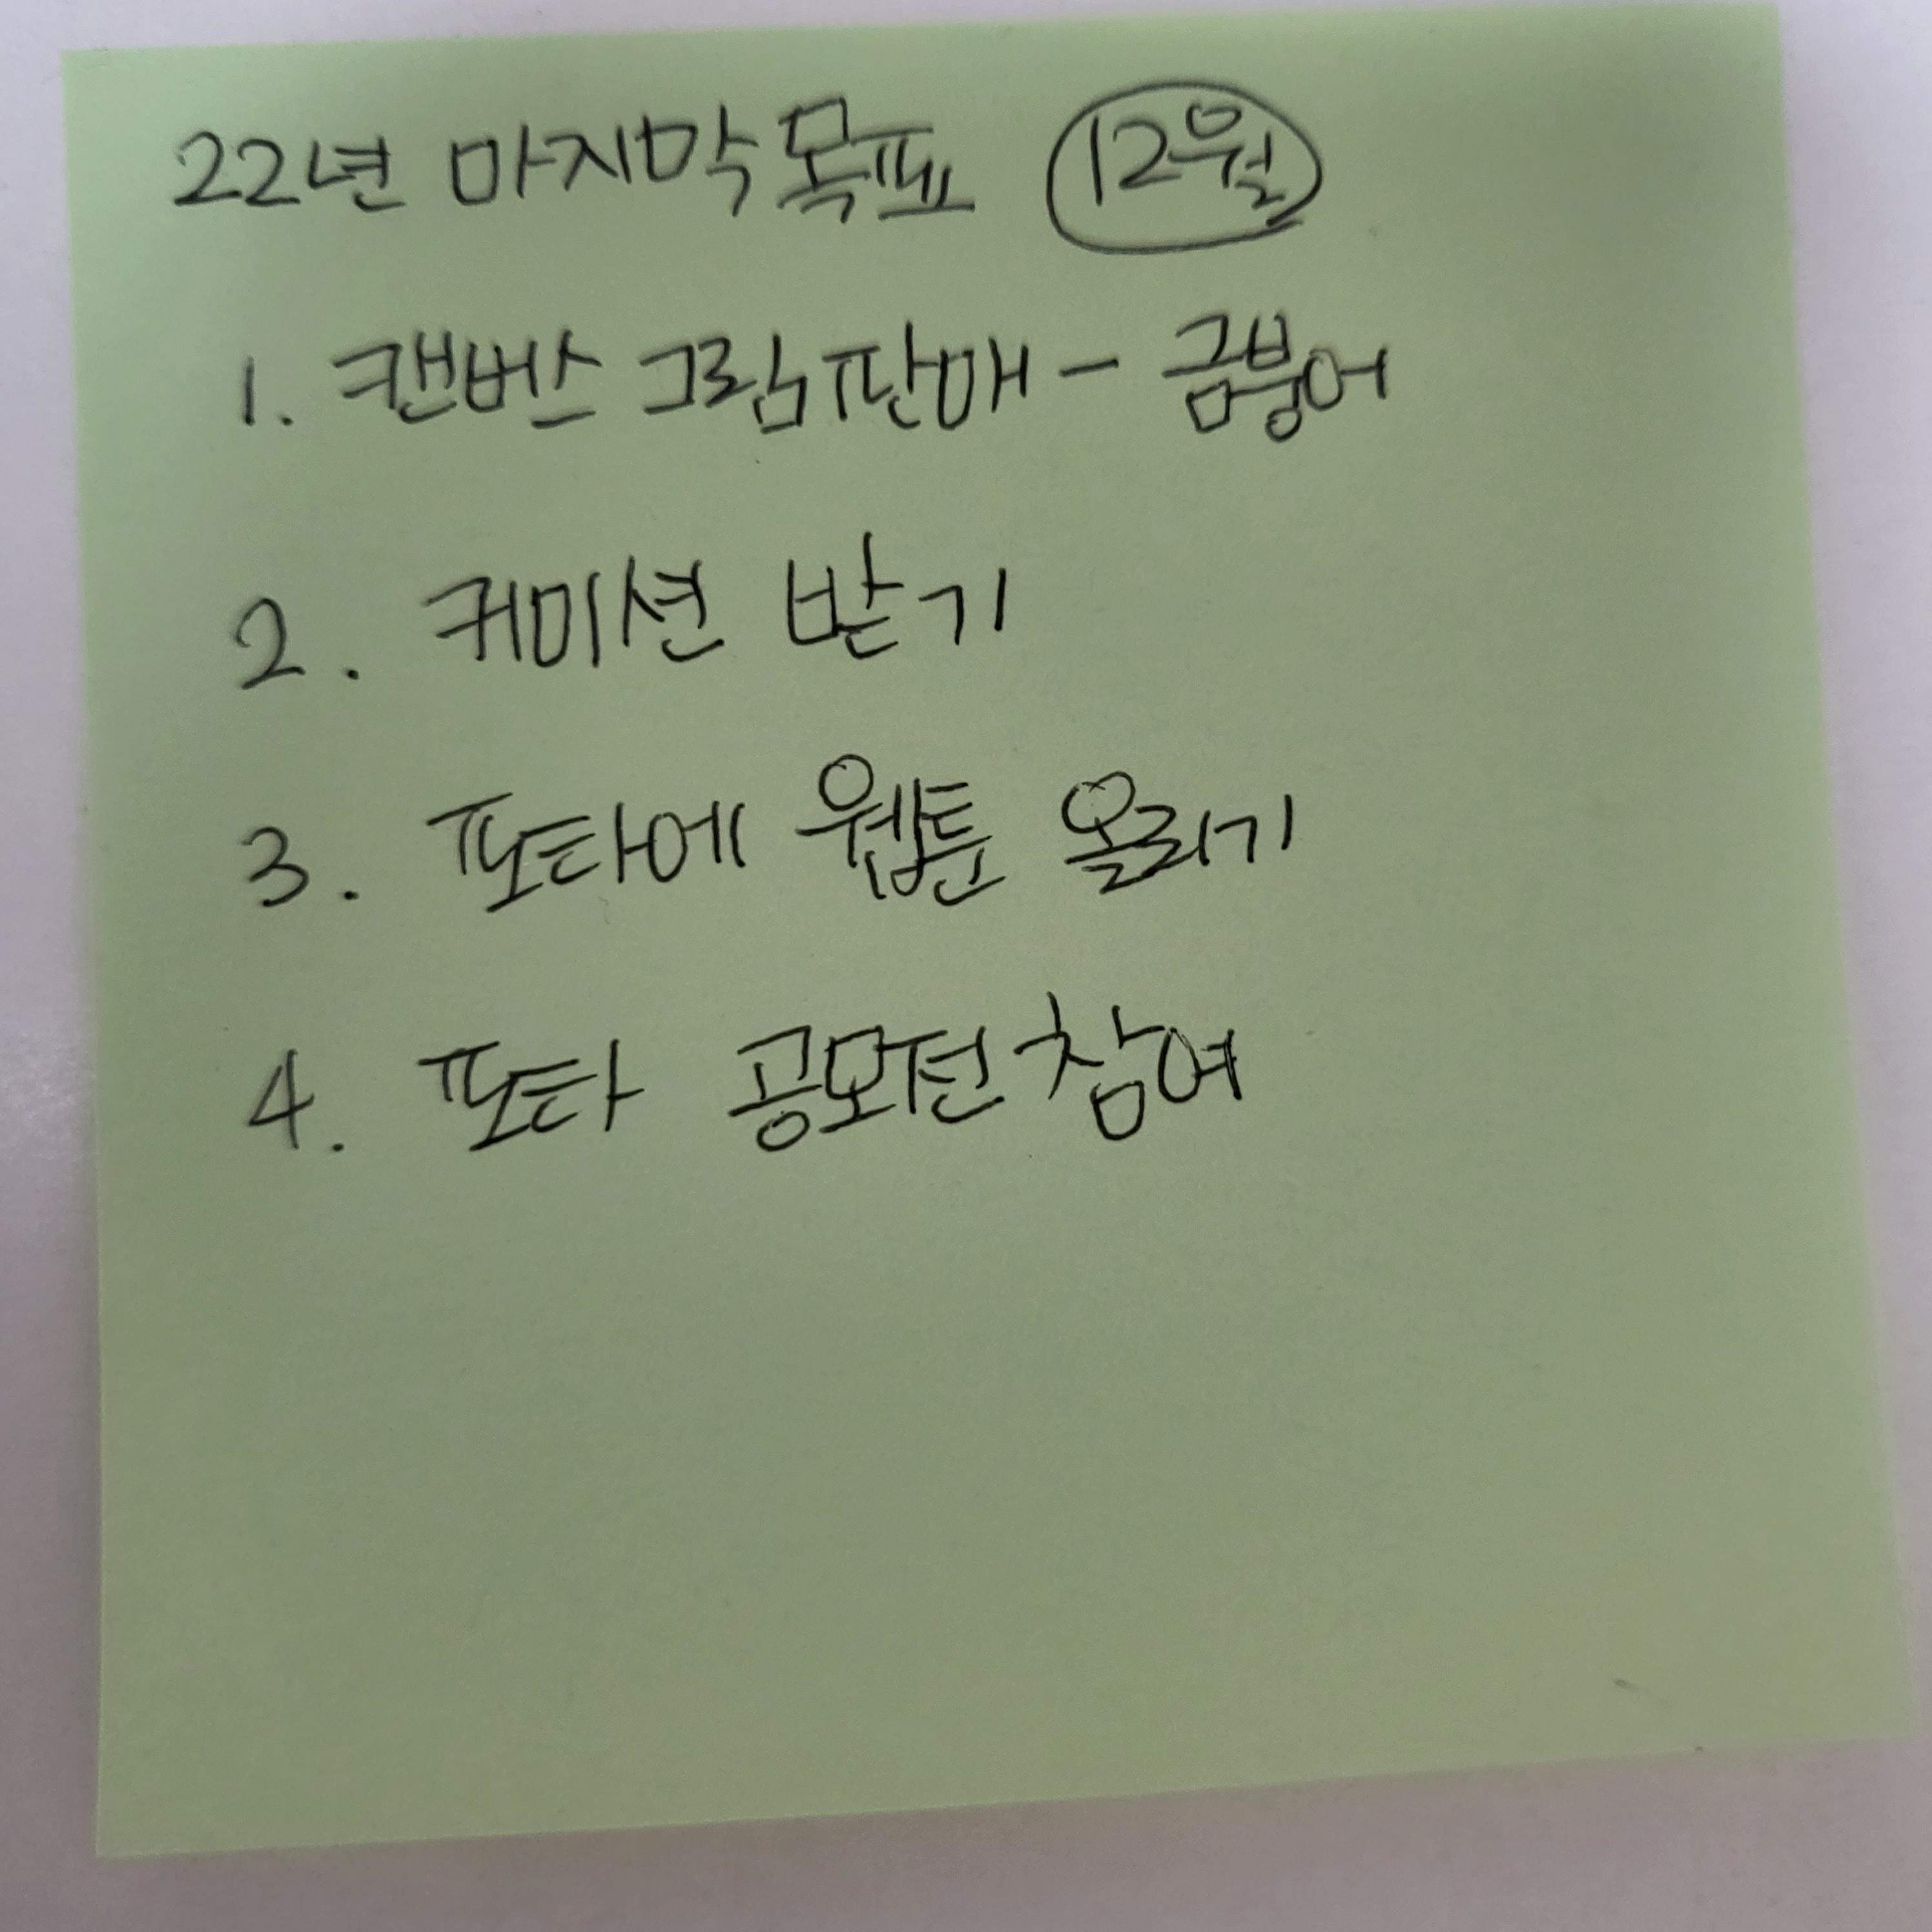 22년 마지막 목표 12월
1. 캔버스 그림 판매 - 금붕어
2. 커미션 받기
3. 포타에 웹툰 올리기
4. 포타 공모전 참여